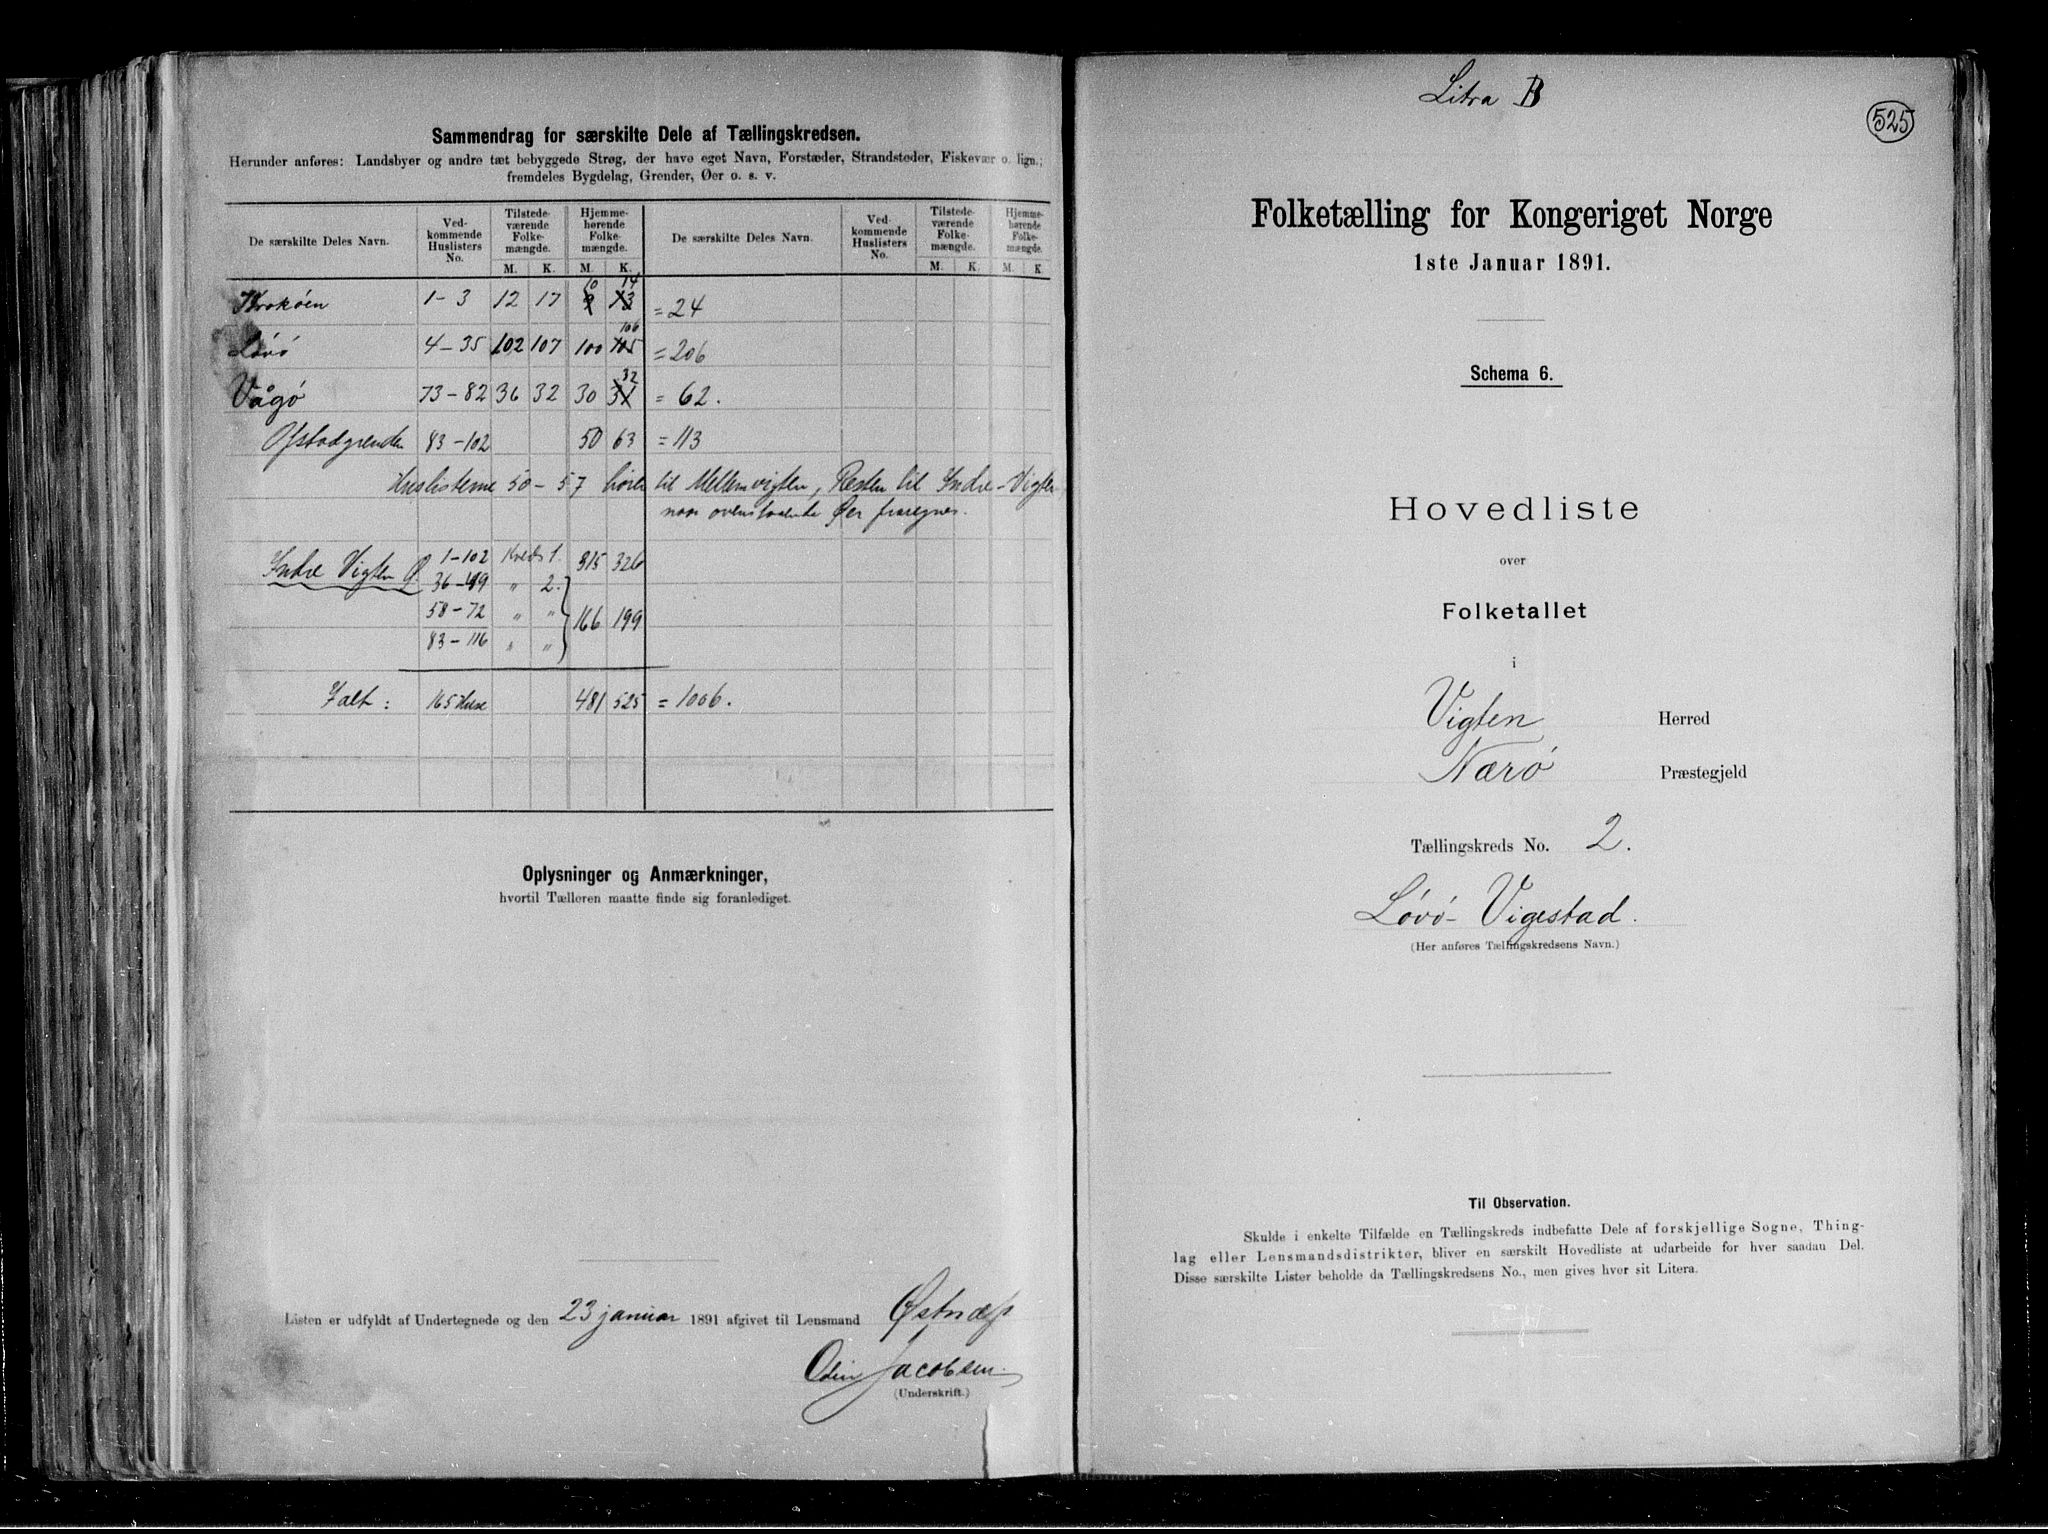 Sammendrag for særskilte Dele af Tællingskredsen.
Herunder anføres: Landsbyer og andre tæt bebyggede Strøg, der have eget Navn, Forstæder, Strandsteder, Fiskevær o. lign.;
fremdeles Bygdelag, Grender, Øer o. s. v.
De særskilte Deles Navn. Ved-kommende Huslisters No. Tilstede-værende Folke-mængde. Hjemme-hørende Folke-mængde. De særskilte Deles Navn. Ved-kommende Huslisters No. Tilstede-værende Folke-mængde. Hjemme-hørende Folke-mængde.
M. K. M. K. M. K. M. K.
10 14
Krokøen 1-3 12 17 9 13 = 24
106
Løvø 4-35 102 107 100 105 = 206
32
Vågø 73-82 36 32 30 31 = 62.
Ofstadgrenden 83-102 50 63 = 113
Huslisterne 50-57 hører til Mellemvigten, Resten til Indre-Vigten
naar ovenstaaende Øer fraregnes.
Indre Vigten Ø 1-102 Kreds 1. 315 326
36-49 " 2.
58-72 " " 166 199
83-116 " "
Ialt: 165 Huse 481 525 = 1006.
Oplysninger og Anmærkninger,
hvortil Tælleren maatte finde sig foranlediget.
Listen er udfyldt af Undertegnede og den 23 januar 1891 afgivet til Lensmand
Odin Jacobsen
(Underskrift.)
Litra B
525
Folketælling for Kongeriget Norge
1ste Januar 1891.
Schema 6.
Hovedliste
over
Folketallet
i
Vigten Herred
Nærø Præstegjeld
Tællingskreds No. 2.
Løvø-Vigestad.
(Her anføres Tællingskredsens Navn.)
Til Observation.
Skulde i enkelte Tilfælde en Tællingskreds indbefatte Dele af forskjellige Sogne, Thing-
lag eller Lensmandsdistrikter, bliver en særskilt Hovedliste at udarbeide for hver saadan Del.
Disse særskilte Lister beholde da Tællingskredsens No., men gives hver sit Litera.